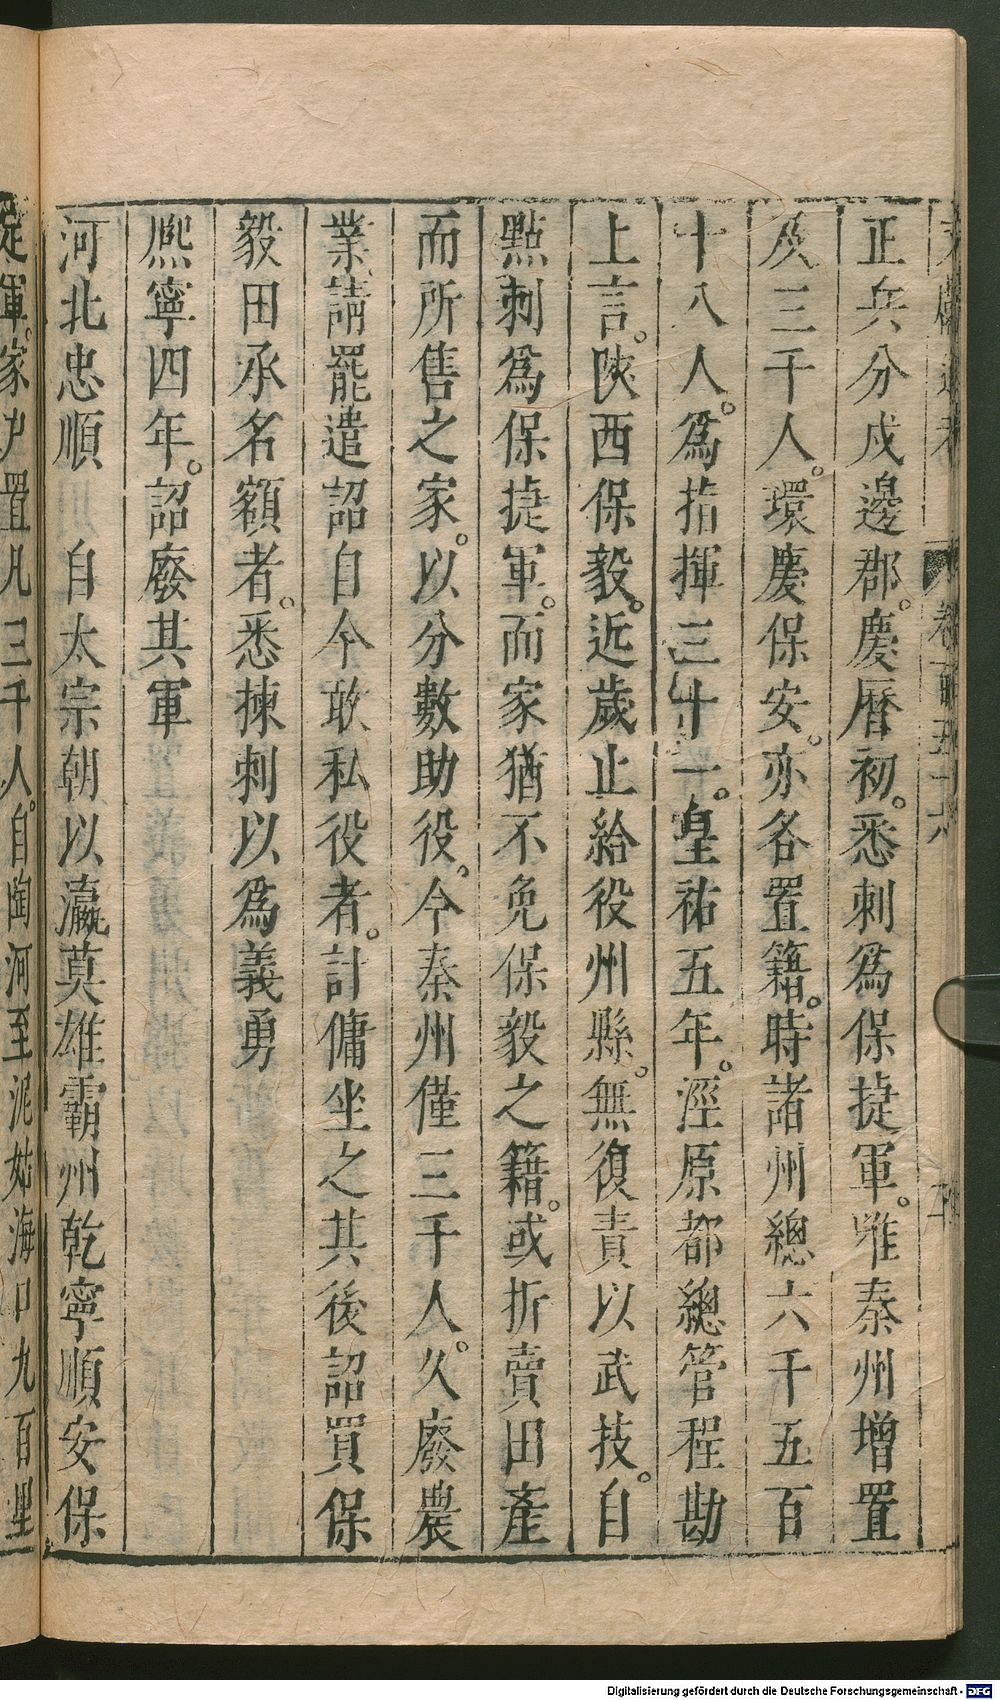 文獻通考 卷一百五十六
正兵分戍邊郡。慶曆初。悉刺爲保捷軍。唯秦州增置
及三千人。環慶保安。亦各置籍。時諸州總六千五百
十八人。爲指揮三十一。皇祐五年。涇原都總管程勘
上言。陝西保毅。近歲止給役州縣。無復責以武技。自
點刺爲保捷軍。而家猶不免保毅之籍。或折賣田產
而所售之家。以分數助役。今秦州僅三千人。久廢農
業。請罷遣詔自今敢私役者。計傭坐之其後詔買保
毅田承名額者。悉揀刺以爲義勇
熈寧四年。詔廢其軍
河北忠順 自太宗朝以瀛莫雄霸州乾寧順安保
定軍。家戶置凡三千人。自陶河至泥姑海口九百里
Digitalisierung gefördert durch die Deutsche Forschungsgemeinschaft - DFG